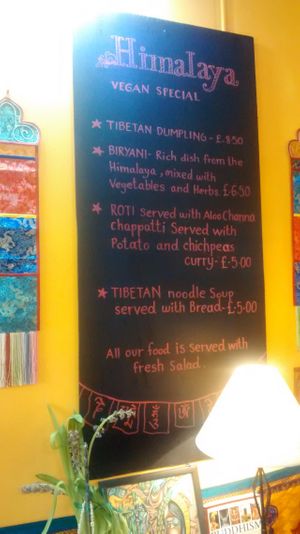 Himalaya
VEGAN SPECIAL
★ TIBETAN DUMPLING - £.850
★ BIRYANI- Rich dish from the
Himalaya, mixed with
Vegetables and Herbs. £.6.50
★ ROTI Served with Aloo Channa
chappatti Served with
Potato and chichpeas
curry- £.5.00
★ TIBETAN noodle Soup
served with Bread - £.5.00
All our food is served with
fresh Salad.
BUDDHISM